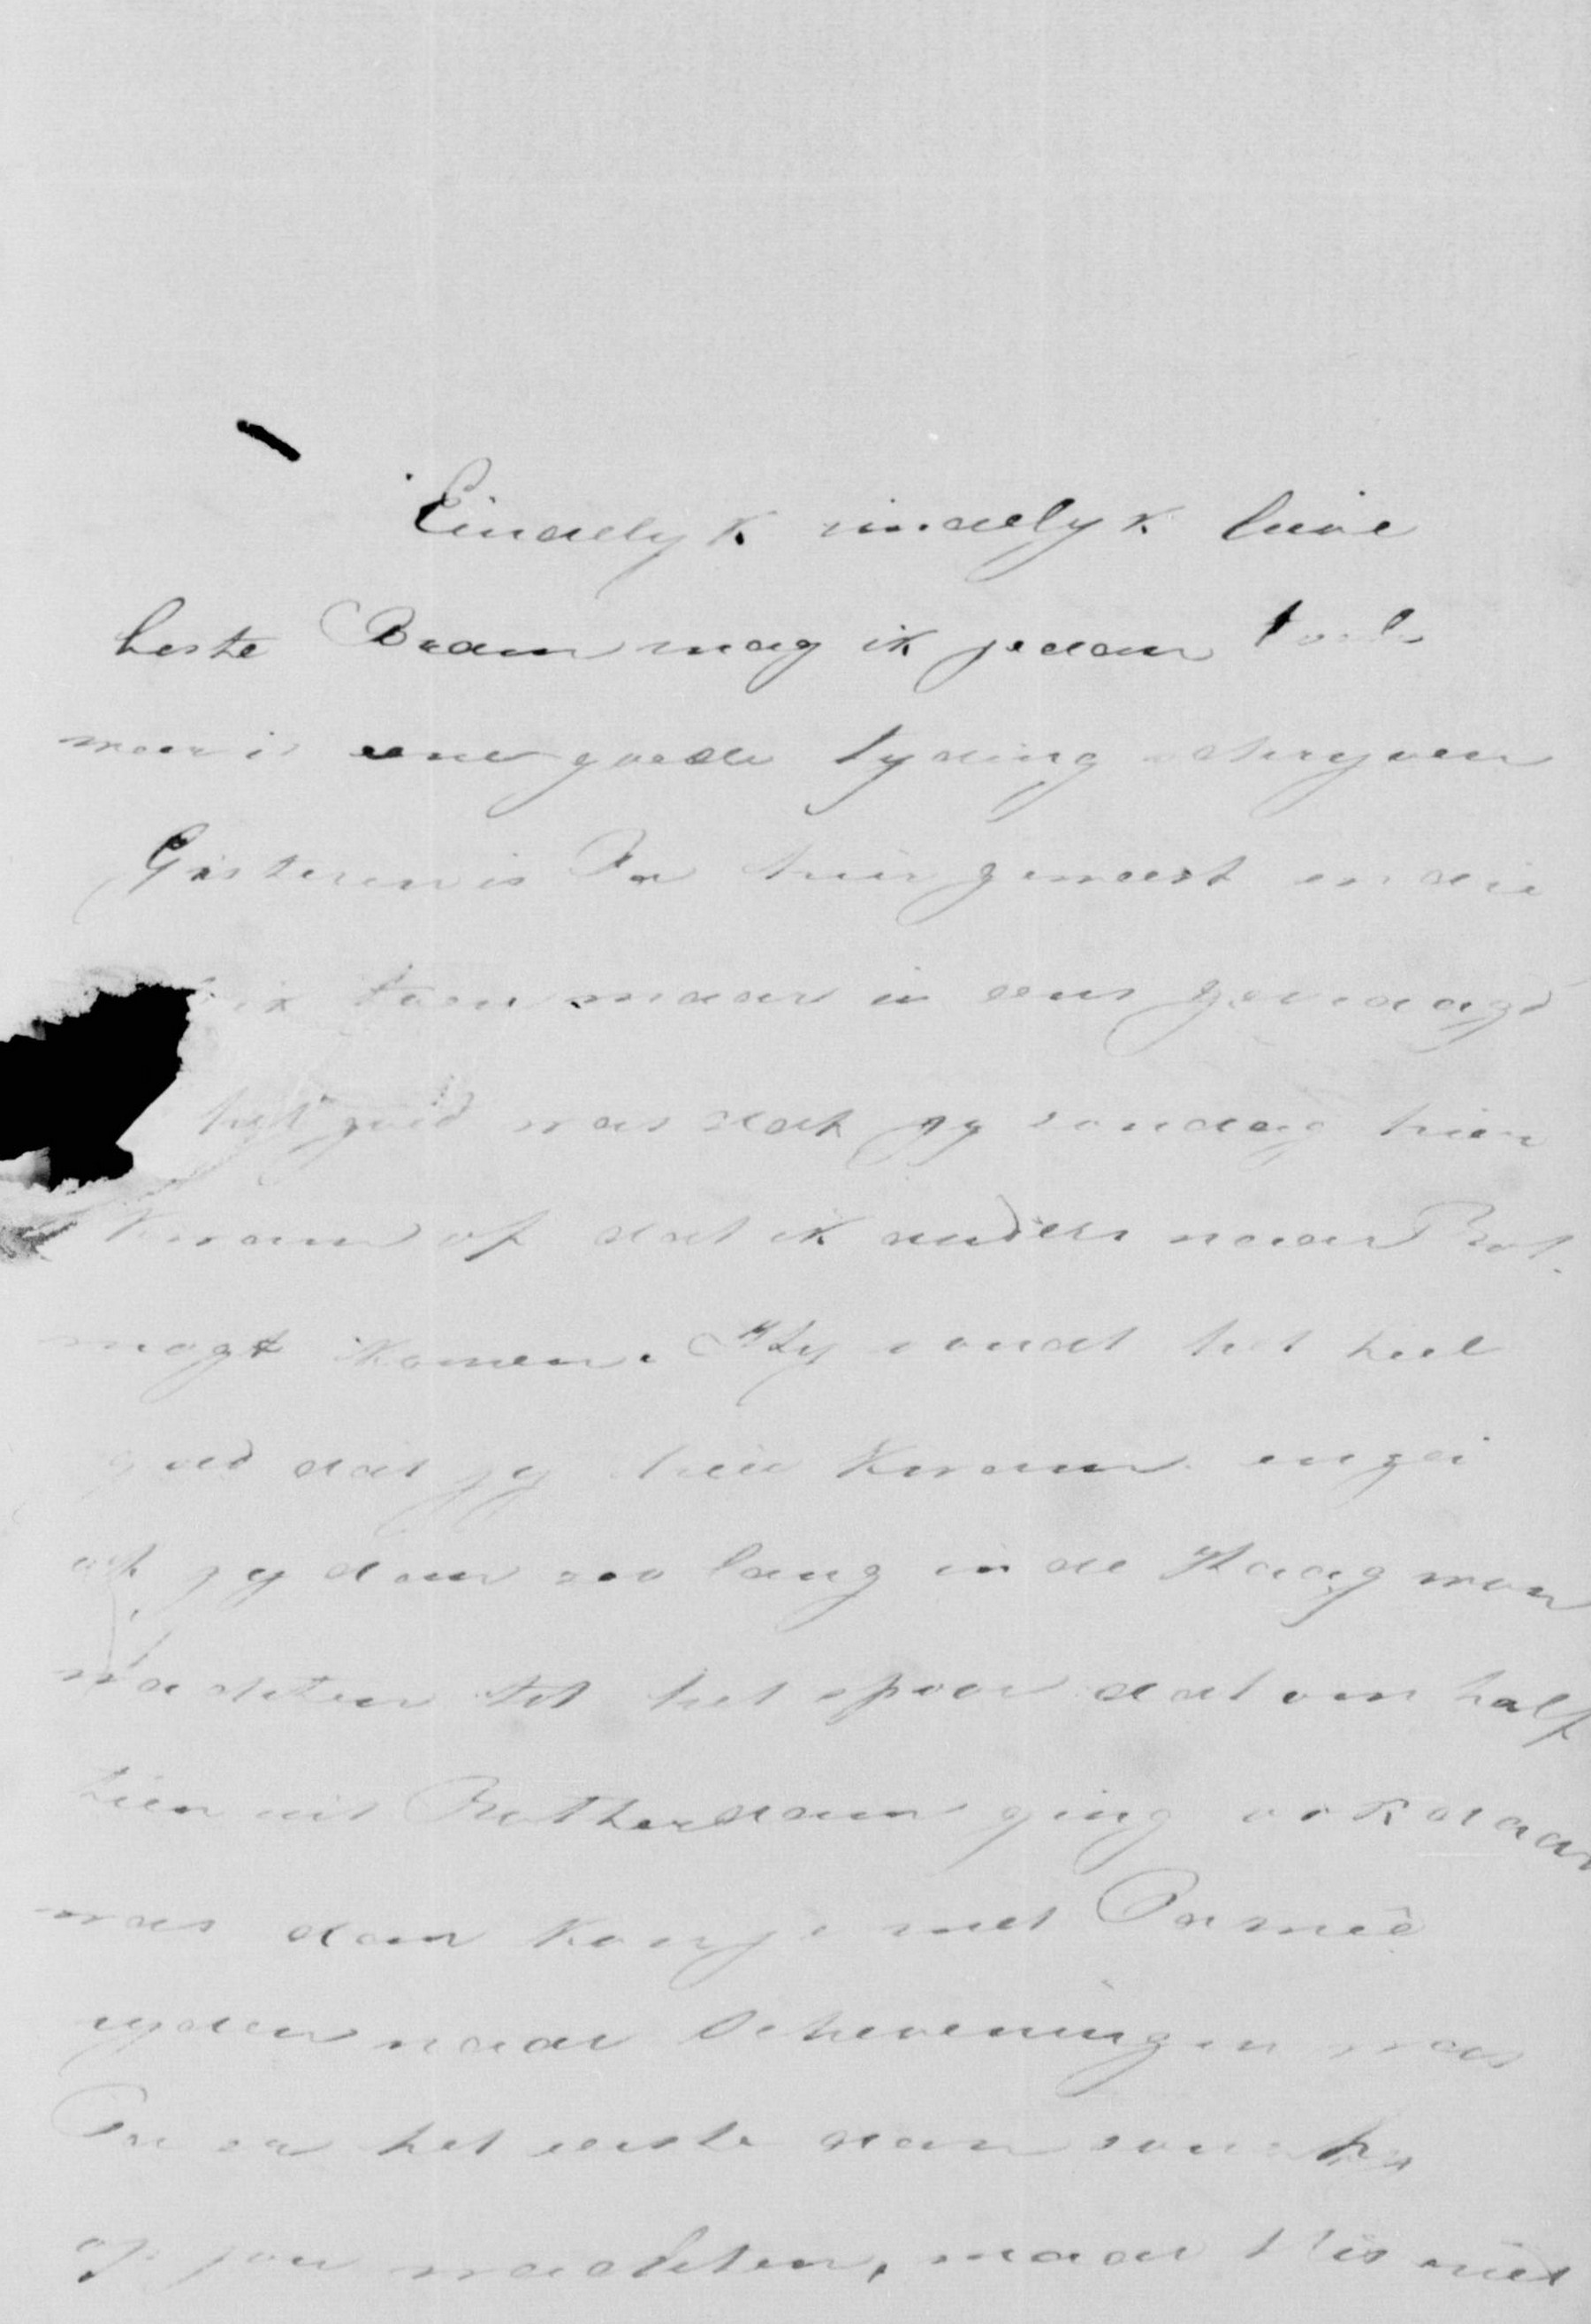 Eindelyk eindelyk lieve
beste Bram mag ik je dan toch
weer is eene goede tyding schryven
Gisteren is Pa hier geweest en die
ik toen maar in eens gevraagd
het goed was dat jy zondag hier
kwam of dat ik anders naar Rot.
mogt komen. Hy vondt het heel
goed dat jy hier kwam en zei
jy dan zoo lang in de Haag won
wachten tot het spoor dat om half
tien uit Rotherdam ging ook daar
was dan kon je met Pa meê
ryden naar Scheveningen was
Pa er het eerste dan zou hy
op jou wachten, maar 't is niet